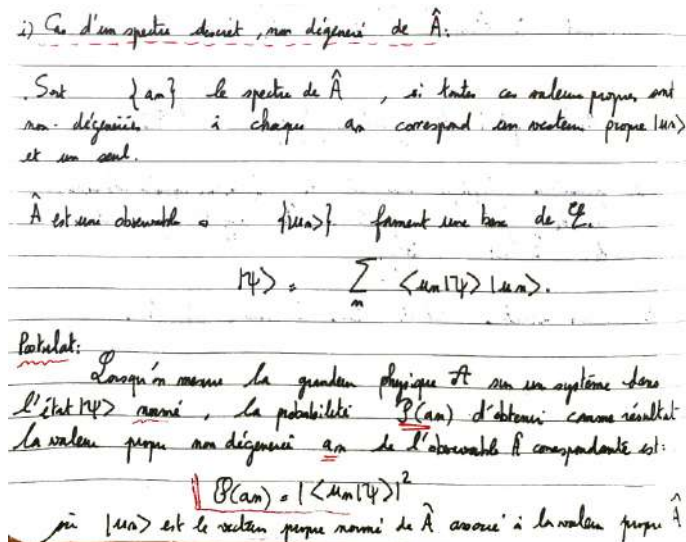 i) Cas d'un spectre discret, non dégénéré de Â:
. Soit {an} le spectre de Â , si toutes ces valeurs propres sont
non-dégénérées à chaque an correspond un vecteur propre |un>
et un seul.
Â est une observable {|un>} forment une base de
|ψ> = Σn <un|ψ> |un>.
Postulat:
Lorsqu'on mesure la grandeur physique A sur un système dans
l'état |ψ> normé, la probabilité P(an) d'obtenir comme résultat
la valeur propre non dégénérée an de l'observable Â correspondante est:
P(an) = |<un|ψ>|²
où |un> est le vecteur propre normé de Â associé à la valeur propre Â